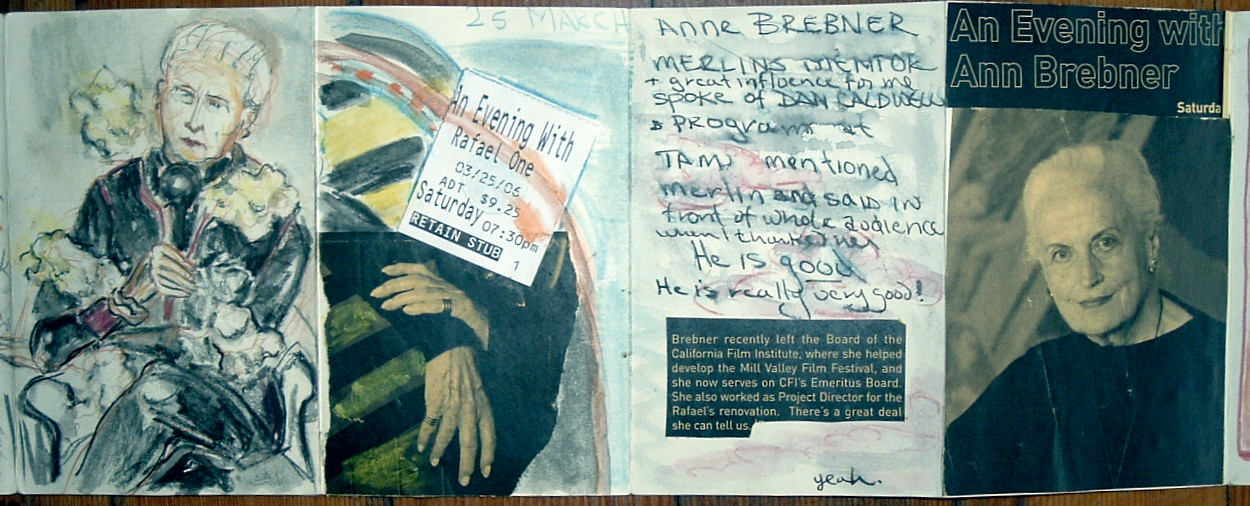 25 MARCH
An Evening With
Rafael One
03/25/06
ADT $9.25
Saturday 07:30pm
RETAIN STUB 1
Anne BREBNER
MERLINS MENTOR
+ great influence for me
SPOKE of DAN CALDWELL
PROGRAM at
TAM, mentioned
merlin and said in
front of whole audience
when I thanked her
He is good
He is really very good!
Brebner recently left the Board of the
California Film Institute, where she helped
develop the Mill Valley Film Festival, and
she now serves on CFI's Emeritus Board.
She also worked as Project Director for the
Rafael's renovation. There's a great deal
she can tell us.
yeah.
An Evening with
Ann Brebner
Saturda